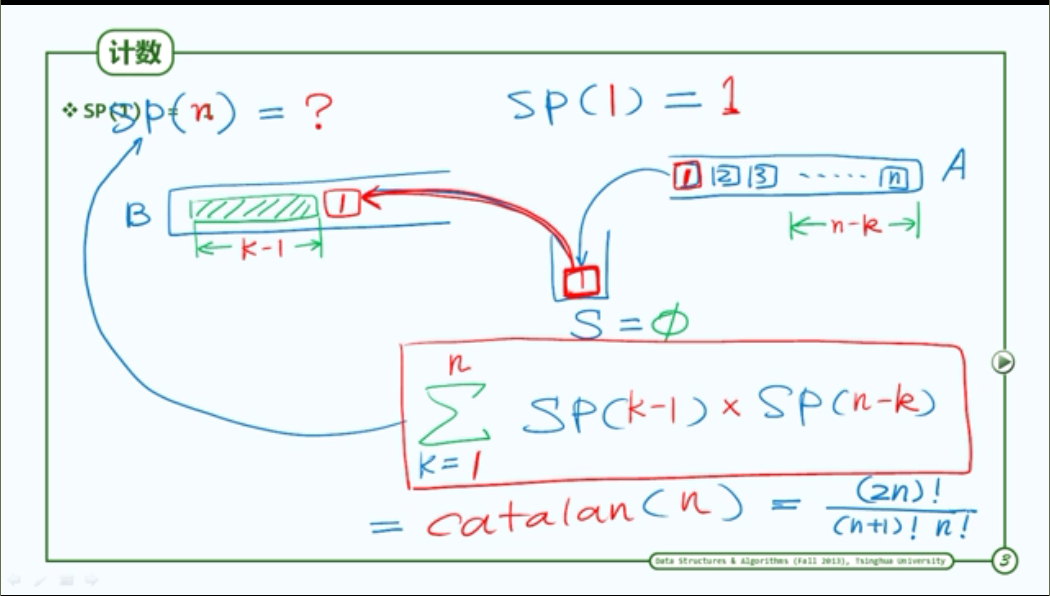 计数
❖ SP(1) = 1
SP(n) = ?
SP(1) = 1
1 2 3 ······ n A
B 1
n-k
k-1
1
S = ϕ
n
∑ SP(k-1) × SP(n-k)
k = 1
= catalan(n) = (2n)! / (n+1)! n!
Data Structures & Algorithms (Fall 2013), Tsinghua University
3